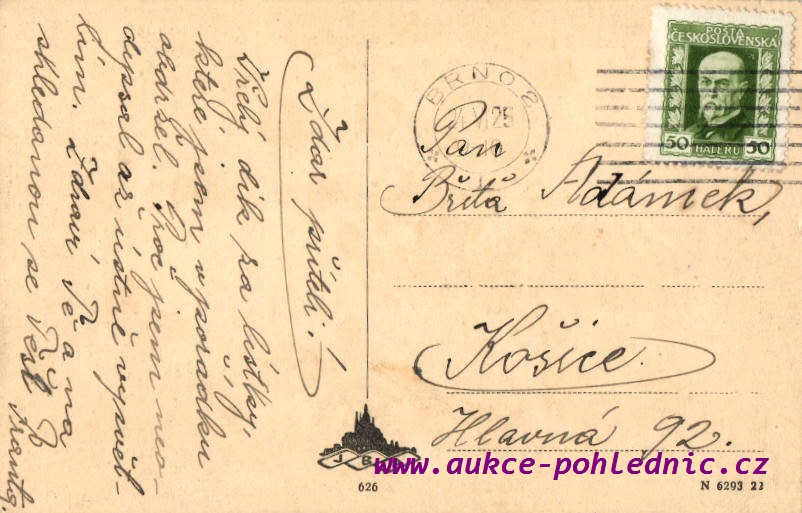 Ždar příteli!
Vřelý dík za lístky,
které jsem v pořádku
obdržel. Proč jsem neo-
depsal až ústně vysvět-
lím. Zdraví Tě a na
shledanou se Těší
Frant.
BRNO 2
VI 25
POŠTA
ČESKOSLOVENSKÁ
50 HALÉŘŮ 50
Pan
Břéťa Adámek,
Košice.
Hlavná 92.
www.aukce-pohlednic.cz
626
N 6293 22